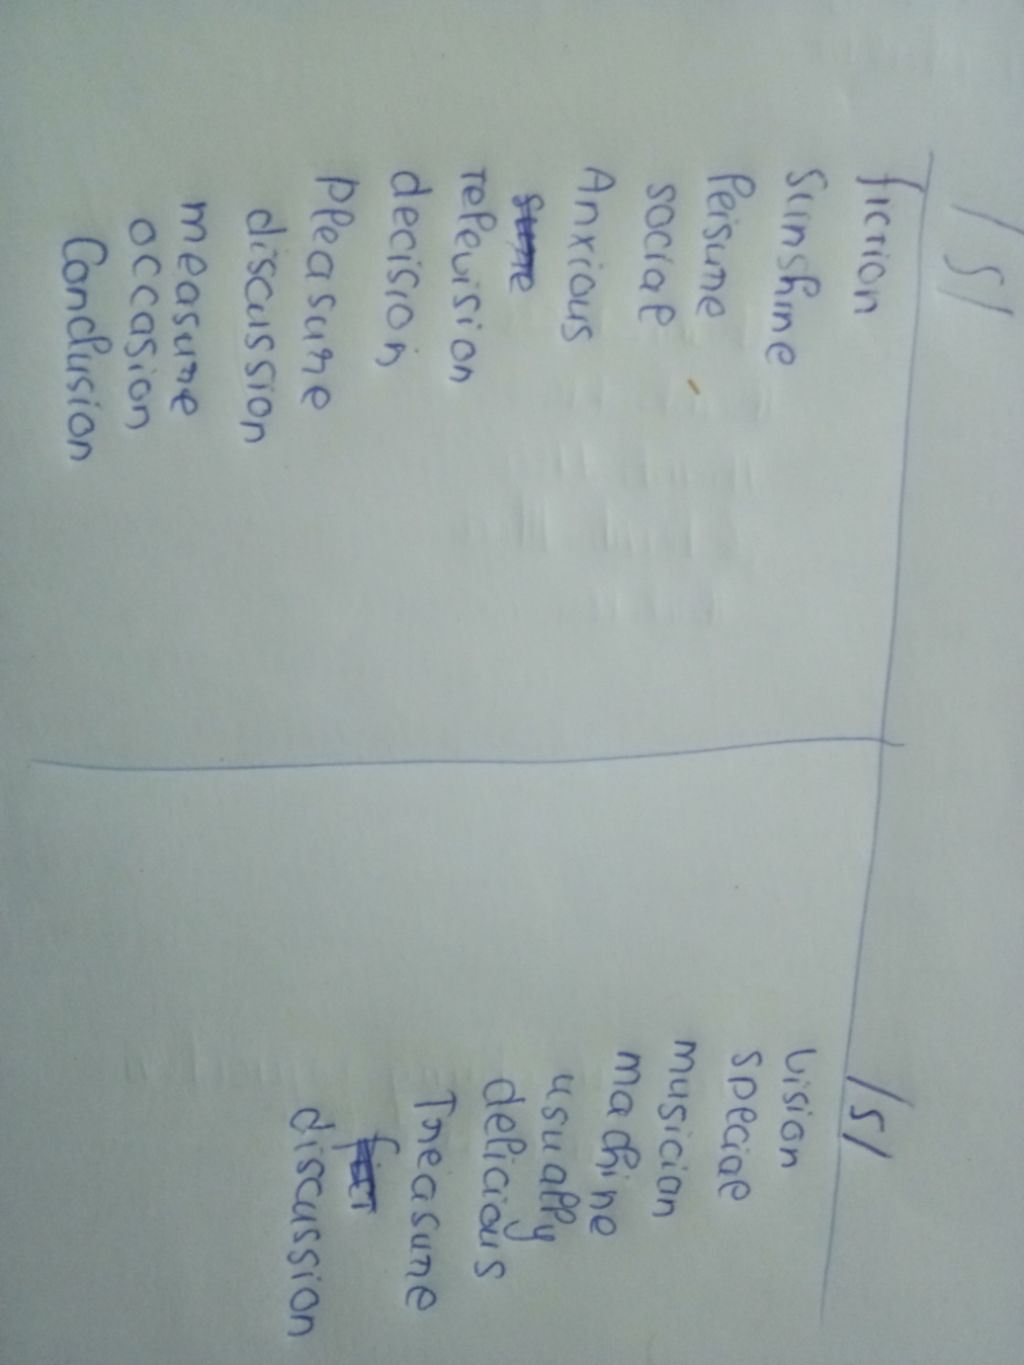 /ʃ/
fiction
Sunshine
leisure
social
Anxious
television
decision
pleasure
discussion
measure
occasion
Conclusion
/s/
vision
special
musician
machine
usually
delicious
Treasure
discussion